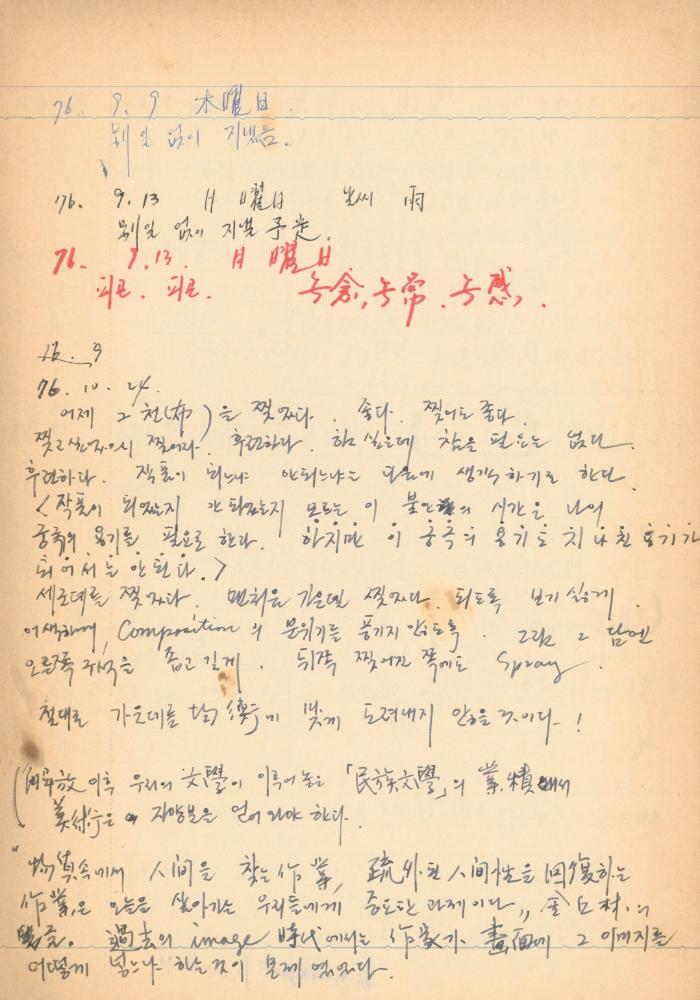 76. 9. 9 木曜日.
別일 없이 지냈음.
76. 9. 13 月曜日 날씨 雨
別일 없이 지낼 予定.
76. 9. 13. 月曜日
피곤. 피곤. 無念, 無常, 無感, .
76. 9
76. 10. 24.
어제 그 천(布)을 찢었다. 좋다. 찢어도 좋다.
찢고 싶었으니 찢어라. 후련하다. 하고 싶은데 참을 필요는 없다.
후련하다. 작품이 되느냐 안되느냐는 다음에 생각하기로 한다.
<작품이 되었는지 안 되었는지 모르는 이 불안의 시간은 나의
중측의 용기를 필요로 한다. 하지만 이 중측의 용기도 지나친 용기가
되어서는 안된다.>
세로대를 찢었다. 맨처음 가운델 찢었다. 되도록 보기 싫게.
어색하게, Composition의 분위기를 풍기지 않도록. 그림 그 담엔
오른쪽 구석을 좁고 길게. 뒤쪽 찢어진 쪽에도 Spray.
절대로 가운데를 均衡에 맞게 도려내지 않을 것이다. !
(解放 이후 우리의 文學이 이루어 놓은 「民族文學」의 業積에서
美術은 자양분을 얻어 와야 한다.
"物質속에서 人間을 찾는 作業, 疏外된 人間性을 回復하는
作業은 오늘을 살아가는 우리들에게 중요한 과제이다" 金 의
過去의 image 時代에서는 作家가 畫面에 그 이미지를
어떻게 넣느냐 하는 것이 문제였었다.